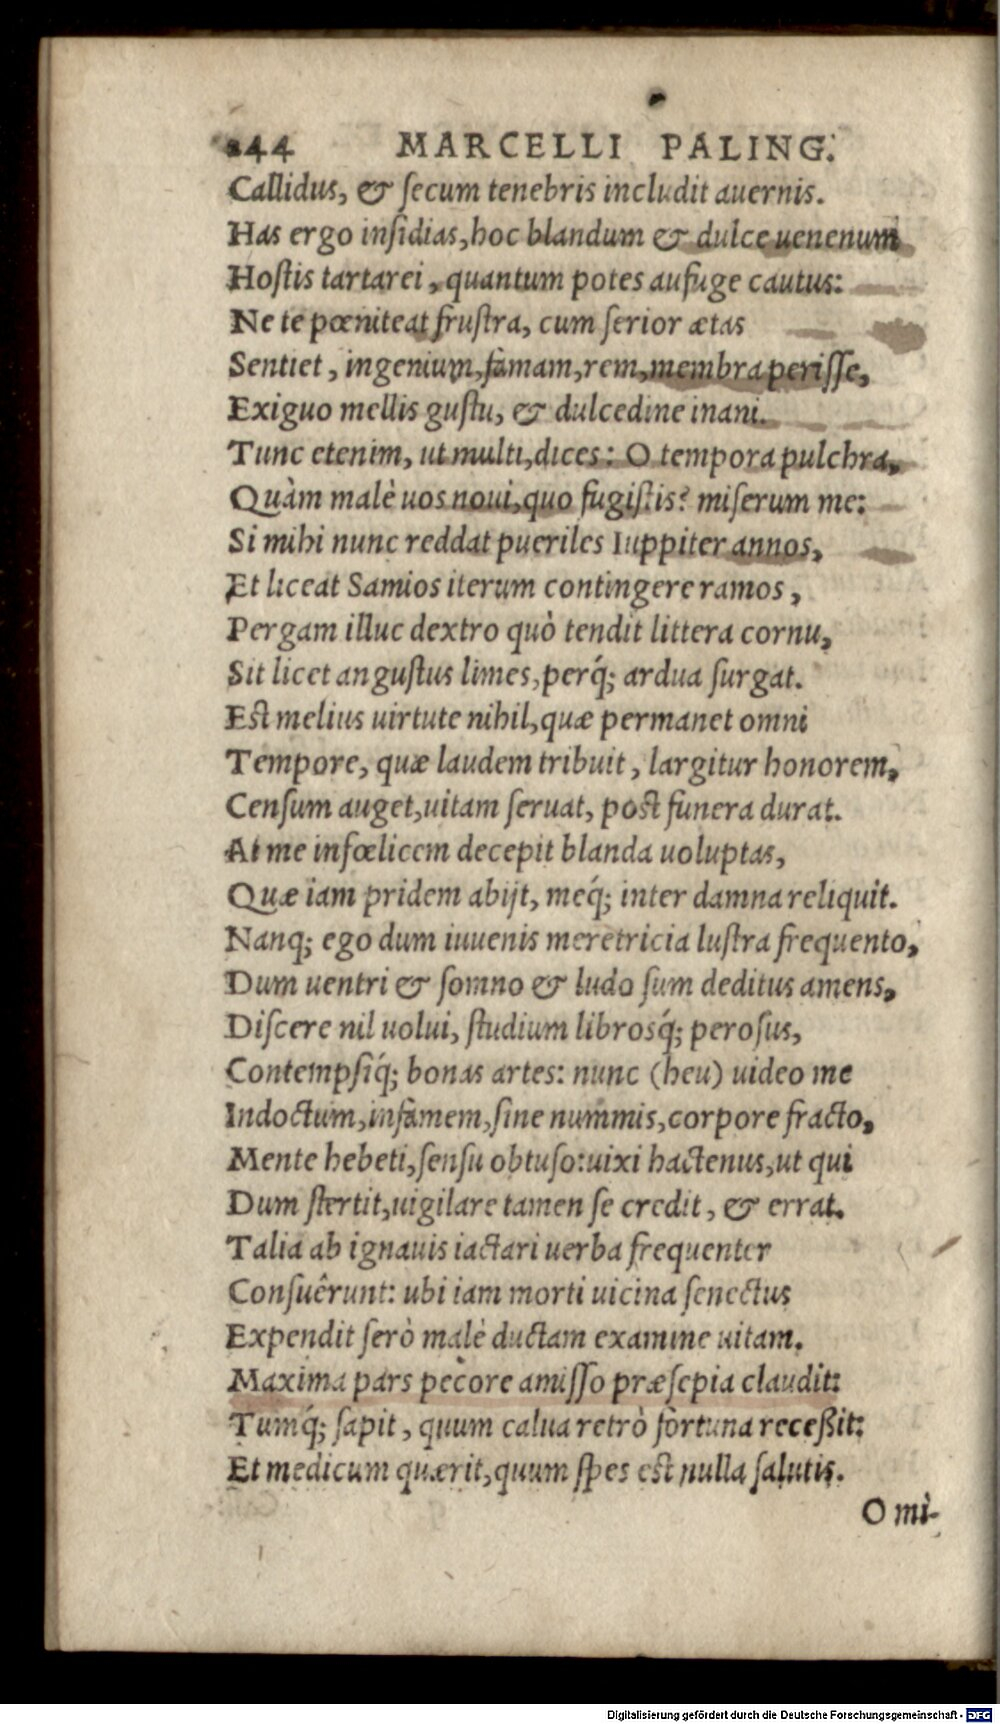 244 MARCELLI PALING.
Callidus, & ſecum tenebris includit auernis.
Has ergo inſidias, hoc blandum & dulce uenenum
Hoſtis tartarei, quantum potes aufuge cautus:
Ne te pœniteat fruſtra, cum ſerior ætas
Sentiet, ingenium, famam, rem, membra periſſe,
Exiguo mellis guſtu, & dulcedine inani.
Tunc etenim, ut multi, dices: O tempora pulchra,
Quàm malè uos noui, quo fugiſtis? miſerum me:
Si mihi nunc reddat pueriles Iuppiter annos,
Et liceat Samios iterum contingere ramos,
Pergam illuc dextro quò tendit littera cornu,
Sit licet anguſtus limes, perq́; ardua ſurgat.
Est melius uirtute nihil, quæ permanet omni
Tempore, quæ laudem tribuit, largitur honorem,
Cenſum auget, uitam ſeruat, post funera durat.
At me infœlicem decepit blanda uoluptas,
Quæ iam pridem abijt, meq́; inter damna reliquit.
Nanq; ego dum iuuenis meretricia luſtra frequento,
Dum uentri & ſomno & ludo ſum deditus amens,
Diſcere nil uolui, ſtudium librosq́; peroſus,
Contempſiq́; bonas artes: nunc (heu) uideo me
Indoctum, infamem, ſine nummis, corpore fracto,
Mente hebeti, ſenſu obtuſo: uixi hactenus, ut qui
Dum ſtertit, uigilare tamen ſe credit, & errat.
Talia ab ignauis iactari uerba frequenter
Conſuêrunt: ubi iam morti uicina ſenectus
Expendit ſerò malè ductam examine uitam.
Maxima pars pecore amiſſo præſepia claudit:
Tumq́; ſapit, quum calua retrò fortuna receßit:
Et medicum quærit, quum ſpes est nulla ſalutis.
O mi-
Digitalisierung gefördert durch die Deutsche Forschungsgemeinschaft - DFG